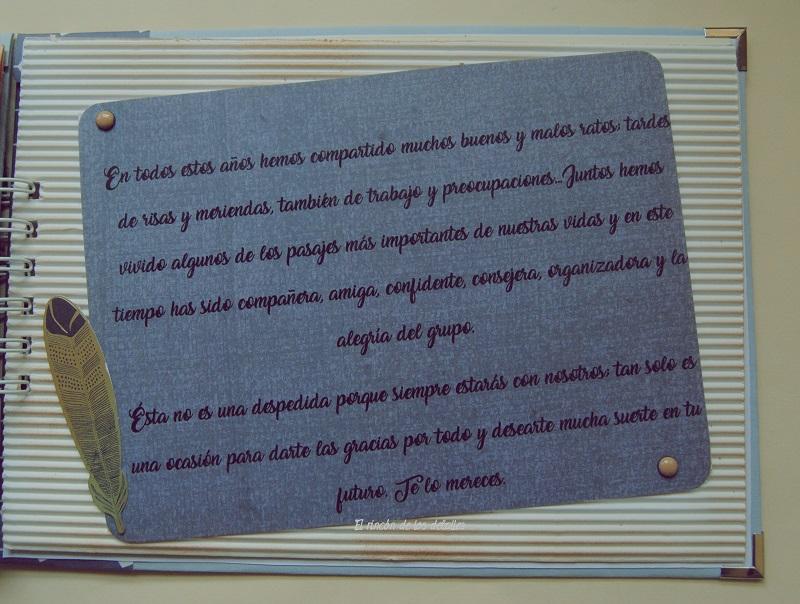 En todos estos años hemos compartido muchos buenos y malos ratos; tardes
de risas y meriendas, también de trabajo y preocupaciones...Juntos hemos
vivido algunos de los pasajes más importantes de nuestras vidas y en este
tiempo has sido compañera, amiga, confidente, consejera, organizadora y la
alegría del grupo.
Ésta no es una despedida porque siempre estarás con nosotros; tan solo es
una ocasión para darte las gracias por todo y desearte mucha suerte en tu
futuro. Te lo mereces.
El rincón de los detalles